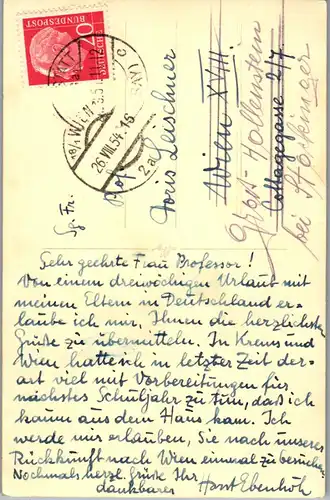 DEUTSCHE
BUNDESPOST
20
WIEN
26.VIII.54-16
2a
Sg. Fr.
Prof.
Doris Leischner
Wien XVIII.
Cottagegasse 2/7
Groß-Hollenstein
bei Stöckinger
Sehr geehrte Frau Professor!
Von einem dreiwöchigen Urlaub mit
meinen Eltern in Deutschland er-
laube ich mir, Ihnen die herzlichsten
Grüße zu übermitteln. In Krems und
Wien hatte ich in letzter Zeit der-
art viel mit Vorbereitungen fürs
nächstes Schuljahr zu tun, daß ich
kaum aus dem Haus kam. Ich
werde mir erlauben, Sie nach unserer
Rückkunft nach Wien einmal zu besuchen.
Nochmals herzl. Grüße Ihr
dankbarer Horst Ebenhöh